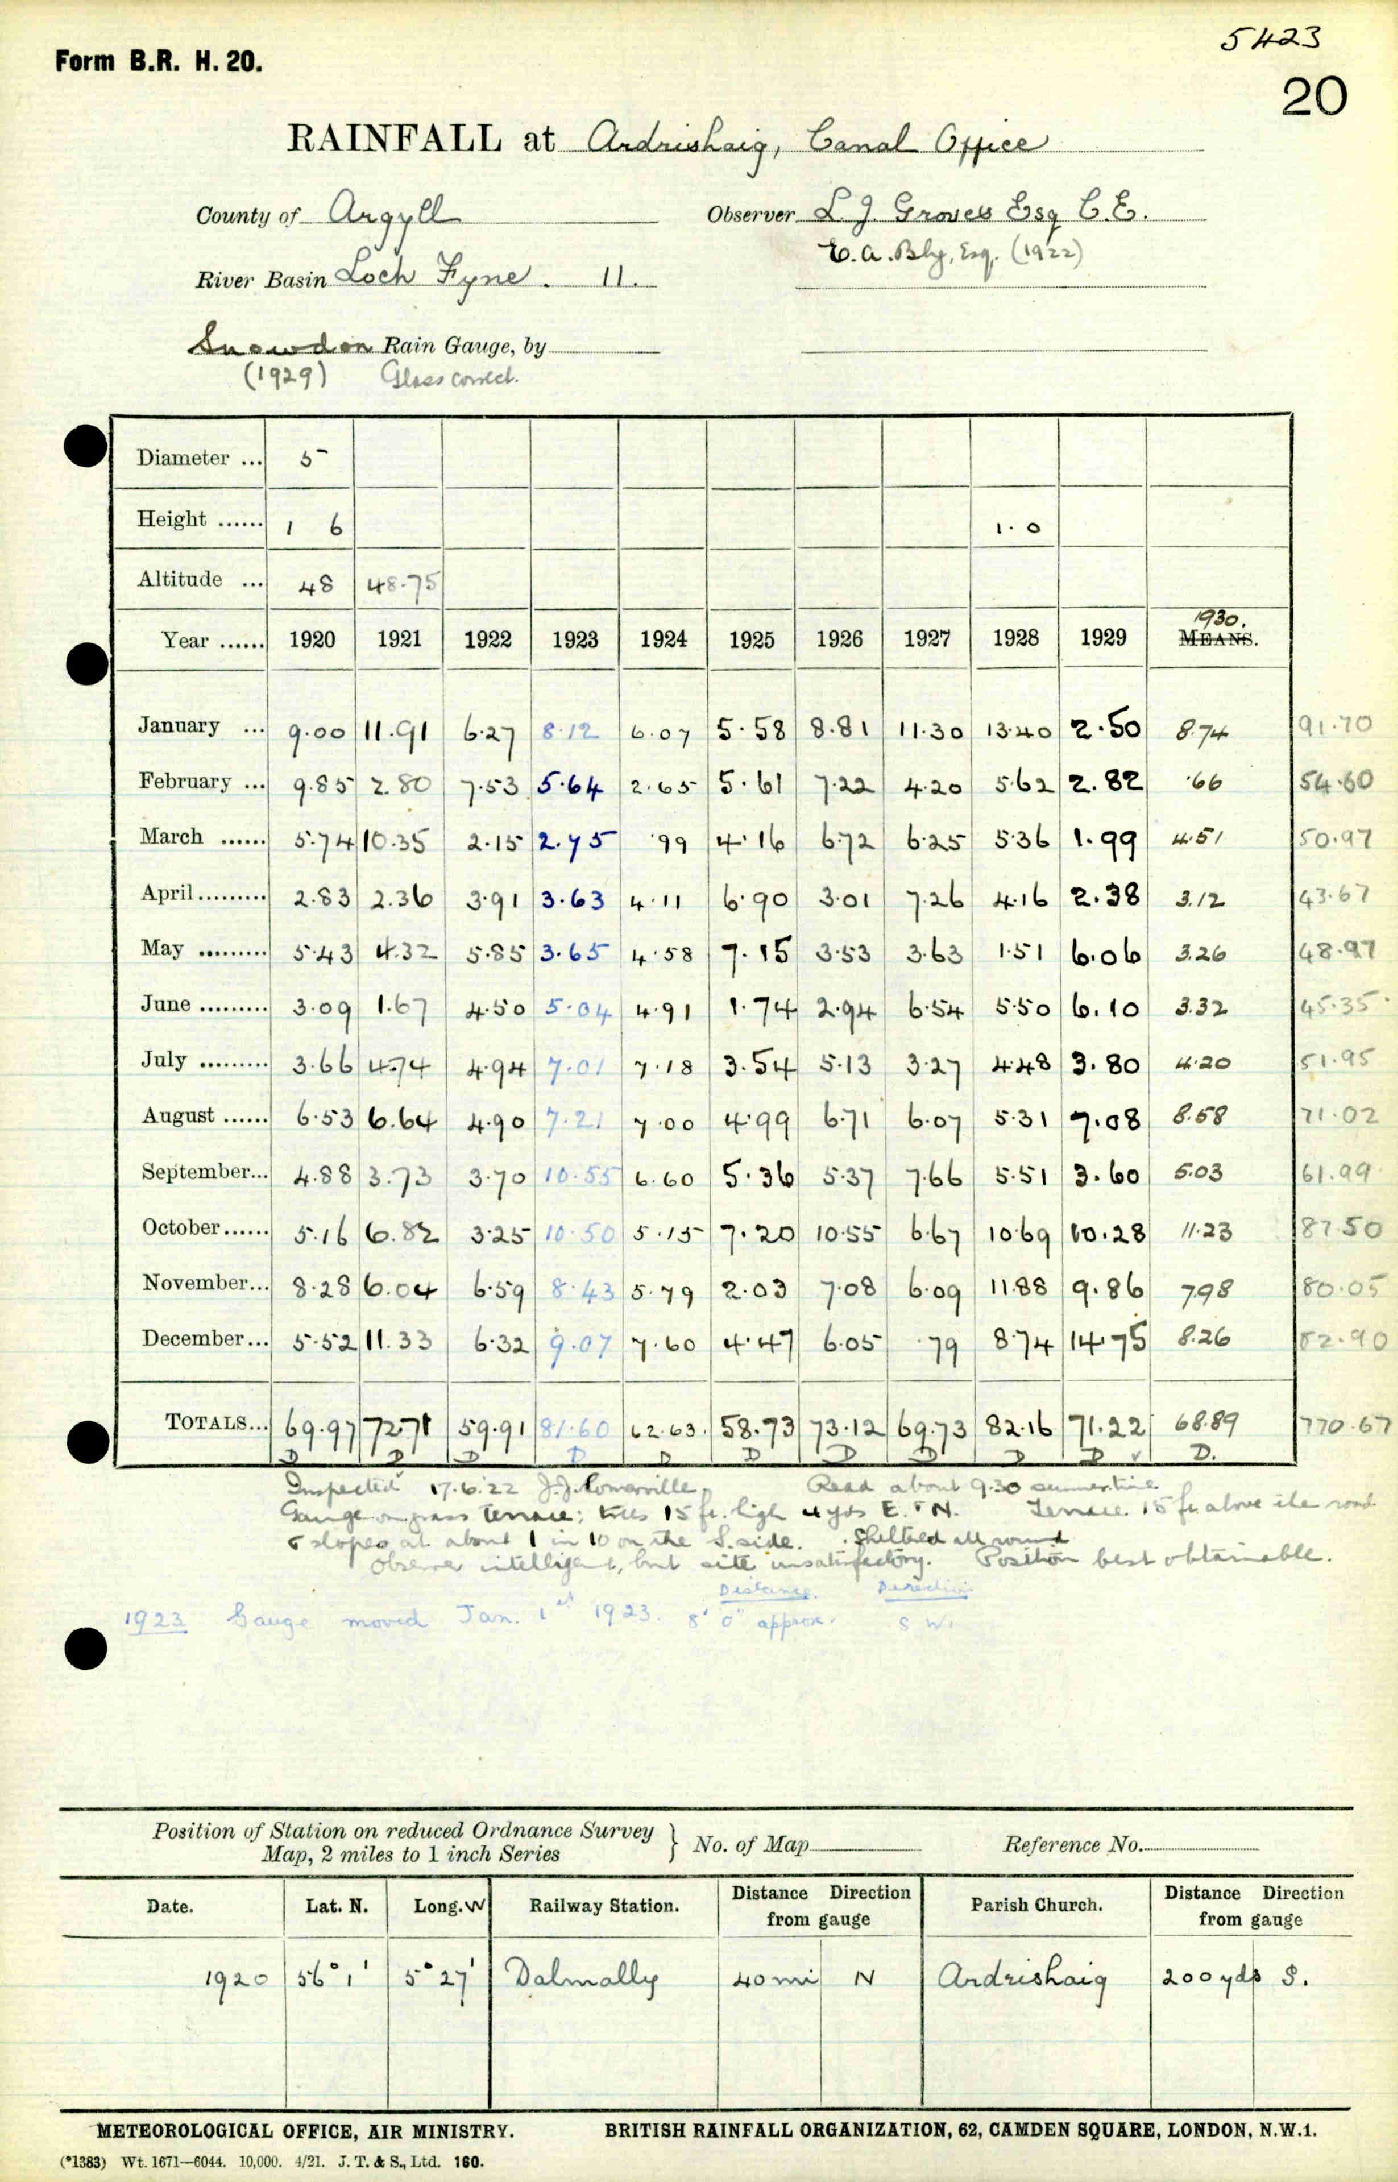 5423
Form B.R. H. 20.
20
RAINFALL at Ardrishaig, Canal Office
County of Argyll Observer L. J. Groves Esq C.E.
E. A. Bly, Esq. (1922)
River Basin Loch Fyne. 11.
Snowdon Rain Gauge, by
(1929) Glass correct.
Diameter ... 5
Height ...... 1 6 1.0
Altitude ... 48 48.75
1930.
Year ...... 1920 1921 1922 1923 1924 1925 1926 1927 1928 1929 MEANS.
January ... 9.00 11.91 6.27 8.12 6.07 5.58 8.81 11.30 13.40 2.50 8.74 91.70
February ... 9.85 2.80 7.53 5.64 2.65 5.61 7.22 4.20 5.62 2.82 .66 54.60
March ...... 5.74 10.35 2.15 2.75 .99 4.16 6.72 6.25 5.36 1.99 4.51 50.97
April ......... 2.83 2.36 3.91 3.63 4.11 6.90 3.01 7.26 4.16 2.38 3.12 43.67
May ......... 5.43 4.32 5.85 3.65 4.58 7.15 3.53 3.63 1.51 6.06 3.26 48.97
June ......... 3.09 1.67 4.50 5.04 4.91 1.74 2.94 6.54 5.50 6.10 3.32 45.35
July ......... 3.66 4.74 4.94 7.01 7.18 3.54 5.13 3.27 4.48 3.80 4.20 51.95
August ...... 6.53 6.64 4.90 7.21 7.00 4.99 6.71 6.07 5.31 7.08 8.58 71.02
September... 4.88 3.73 3.70 10.55 6.60 5.36 5.37 7.66 5.51 3.60 5.03 61.99
October ...... 5.16 6.82 3.25 10.50 5.15 7.20 10.55 6.67 10.69 10.28 11.23 87.50
November... 8.28 6.04 6.59 8.43 5.79 2.03 7.08 6.09 11.88 9.86 7.98 80.05
December... 5.52 11.33 6.32 9.07 7.60 4.47 6.05 .79 8.74 14.75 8.26 82.90
TOTALS... 69.97 72.71 59.91 81.60 62.63 58.73 73.12 69.73 82.16 71.22 68.89 770.67
D D D D D D D D D D D.
Inspected 17.6.22 J.J. Somerville. Read about 9.30 summertime
Gauge on grass terrace; trees 15 ft. high 4 yds E. & N. Terrace 15 ft above the road
& slopes at about 1 in 10 on the S. side. Sheltered all round
Observer intelligent, but site unsatisfactory. Position best obtainable.
Distance. Direction
1923 Gauge moved Jan. 1st 1923. 8' 0" approx. S W.
Position of Station on reduced Ordnance Survey
Map, 2 miles to 1 inch Series } No. of Map Reference No.
Date. Lat. N. Long. W Railway Station. Distance Direction from gauge Parish Church. Distance Direction from gauge
1920 56° 1' 5° 27' Dalmally 40 mi N Ardrishaig 200 yds S.
METEOROLOGICAL OFFICE, AIR MINISTRY. BRITISH RAINFALL ORGANIZATION, 62, CAMDEN SQUARE, LONDON, N.W.1.
(*1383) Wt. 1671—6044. 10,000. 4/21. J. T. & S., Ltd. 160.